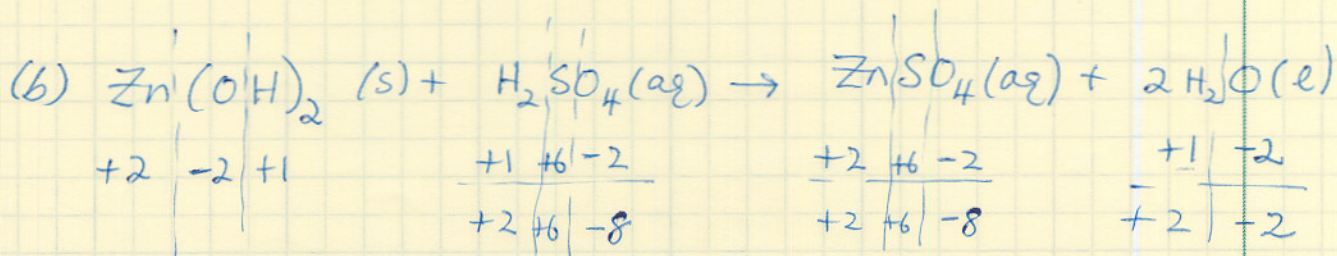 (b) Zn(OH)₂ (s) + H₂SO₄(aq) → ZnSO₄(aq) + 2H₂O(l)
+2 | -2 | +1 +1 +6 | -2 +2 +6 -2 +1 | -2
+2 +6 | -8 +2 +6 | -8 +2 | -2